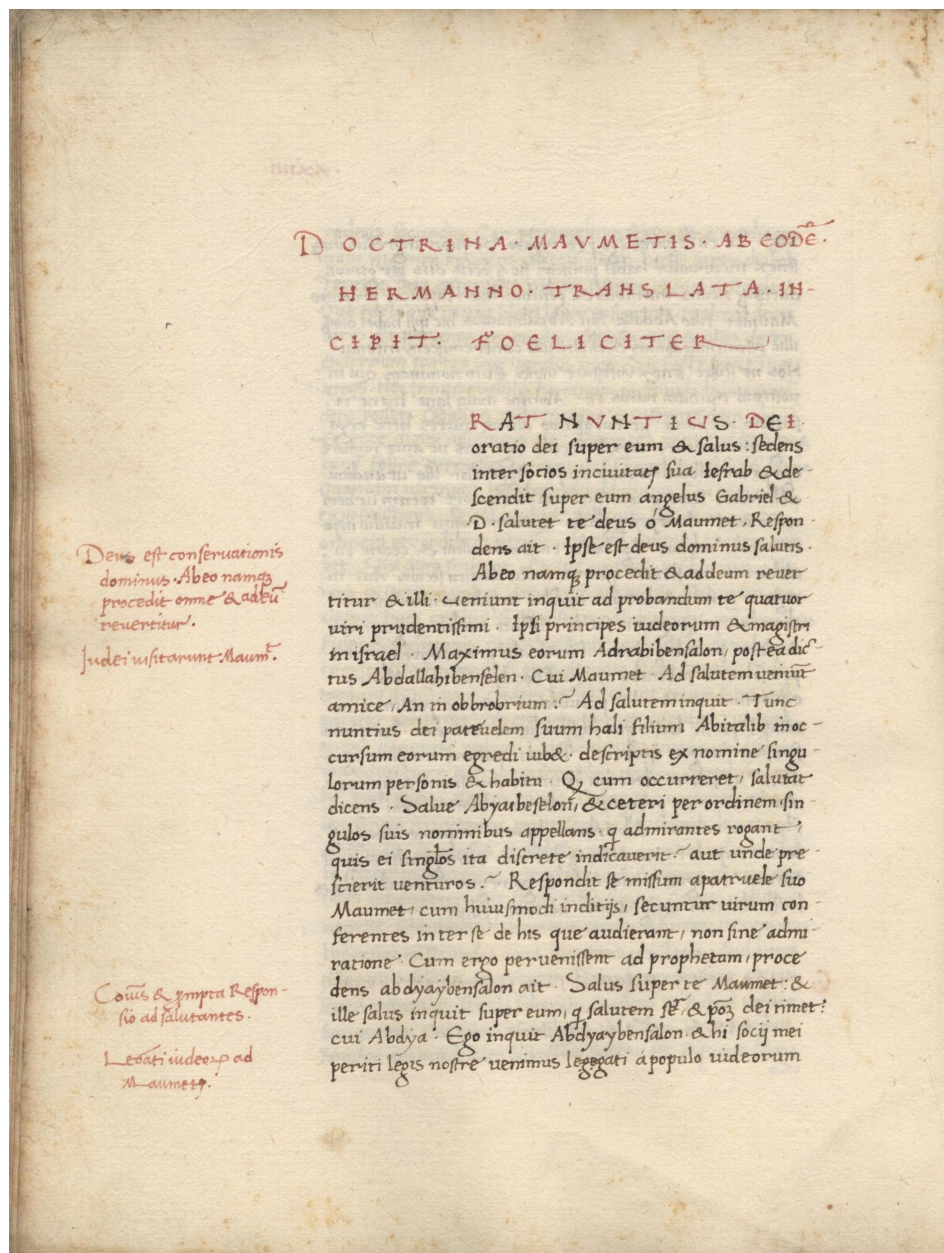 DOCTRINA · MAVMETIS · AB EODĒ ·
HERMANNO · TRANSLATA · IN-
CIPIT · FOELICITER
RAT NVNTIVS · DEI ·
oratio dei super eum & salus : sedens
inter socios in civitate sua Iesrab & de-
scendit super eum angelus Gabriel &
·D· salutet te deus ó Maumet, Respon·
dens ait · Ipse est deus dominus salutis·
Abeo namq; procedit & addeum rever
titur & illi · veniunt inquit ad probandum te quatuor
viri prudentissimi · Ipsi principes iudeorum & magistri
in israel · Maximus eorum Adrabibensalon, postea dic-
tus Abdallahibenselen · Cui Maumet · Ad salutem veniūt
amice, An in obbrobrium ? Ad salutem inquit · Tunc
nuntius dei patruelem suum hali filium Abitalib in oc-
cursum eorum egredi iub& · descriptis ex nomine singu-
lorum personis & habitu · Q cum occurreret, salutat
dicens · Salve Abyaibeselon, & ceteri per ordinem sin-
gulos suis nominibus appellans · q admirantes rogant,
quis ei singlos ita discrete indicaverit ? aut unde pre-
scierit venturos ? Respondit se missum apatruele suo
Maumet, cum huiusmodi inditijs, secuntur virum con-
ferentes inter se de his que audierant, non sine admi-
ratione · Cum ergo pervenissent ad prophetam, proce
dens abdyaybensalon ait · Salus super te Maumet : &
ille salus inquit super eum, q salutem & dei timet :
cui Abdya · Ego inquit Abdyaybensalon & hi socij mei
periti legis nostre venimus legegati á populo iudeorum
Deus est conservationis
dominus · Abeo namq;
procedit omne & adeū
revertitur.
Iudei visitarunt Maum̄.
& prompta Respon-
sio ad salutantes ·
Legati iudeoꝝ ad
Maumetꝫ.